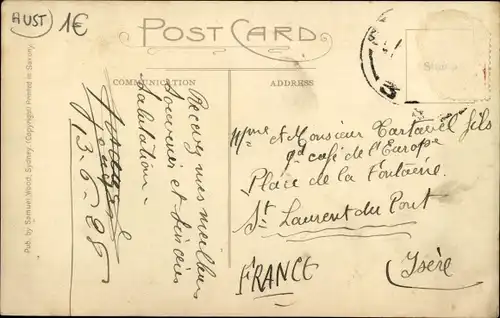 AUST 1€
POST CARD
COMMUNICATION
ADDRESS
Recevez mes meilleurs
souvenirs et sincères
salutations
13-6-08
Mme et Monsieur Tartavel fils
gd café de l'Europe
Place de la Fontaine
St Laurent du Pont
FRANCE
Isère
Pub. by Samuel Wood, Sydney. (Copyright) Printed in Saxony.